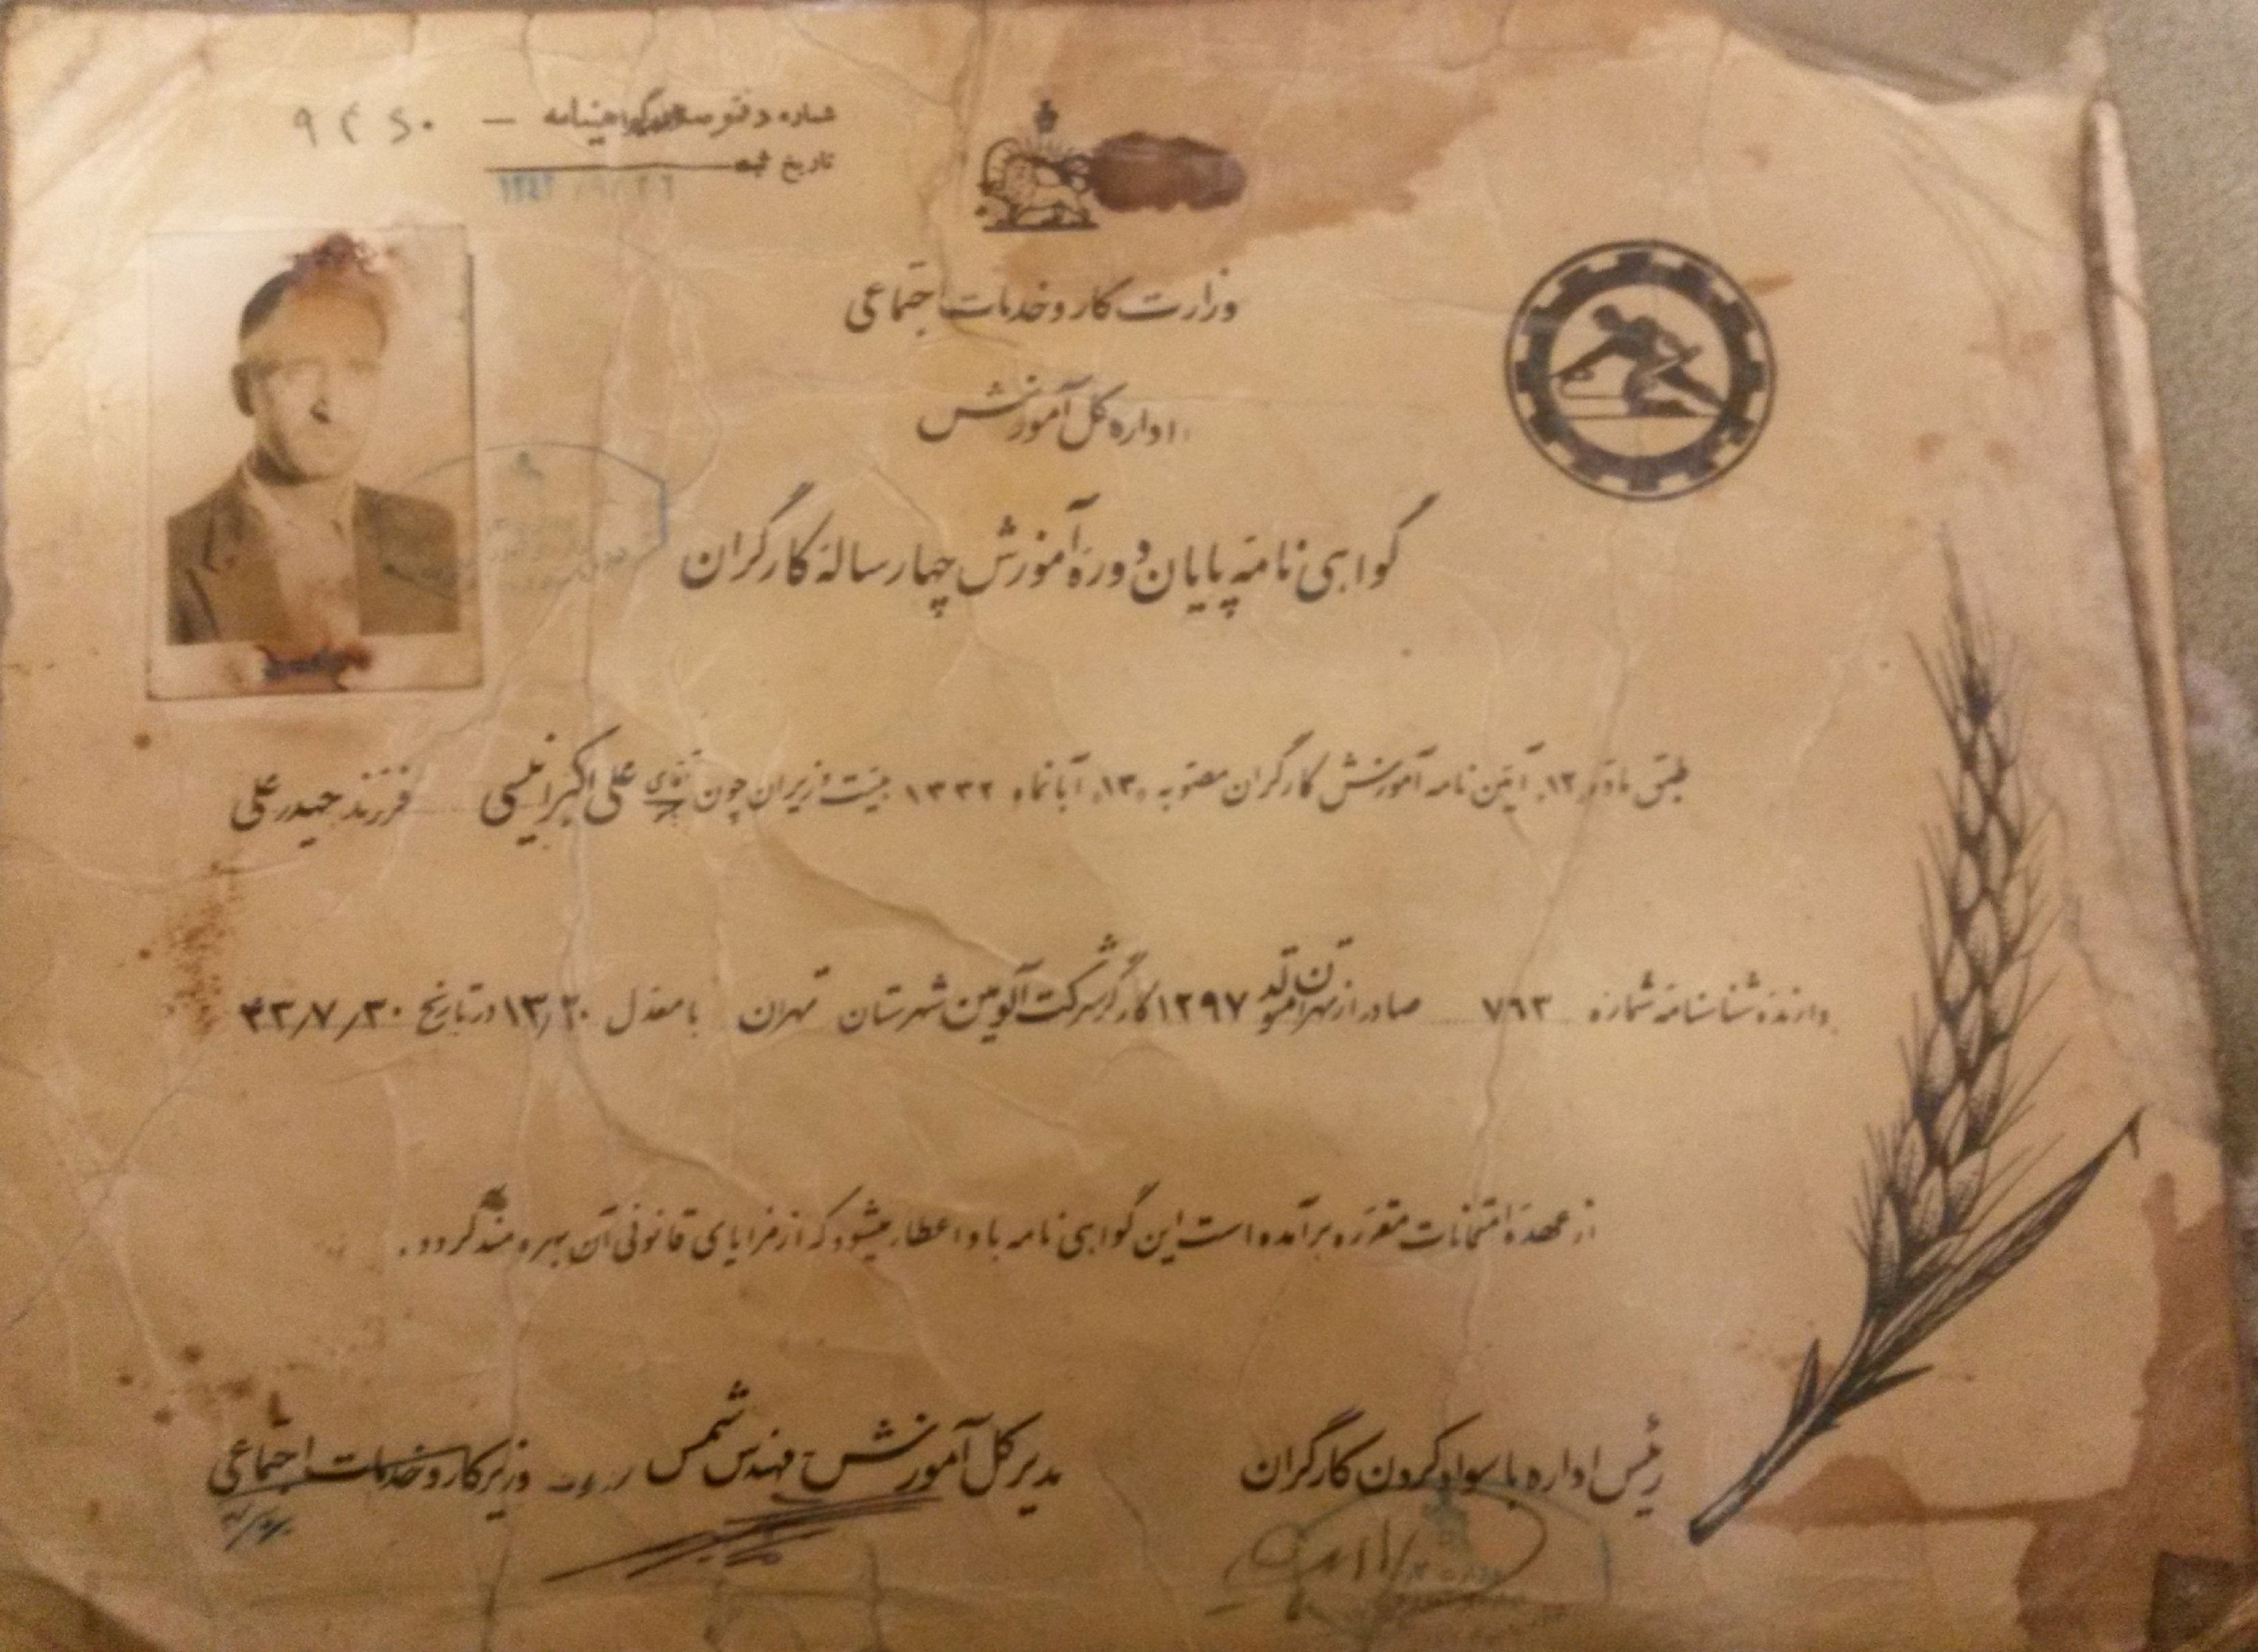 شماره دفتر صدور گواهینامه — ۹۴۶۰
تاریخ ثبت
وزارت کار و خدمات اجتماعی
اداره کل آموزش
گواهی نامه پایان دوره آموزش چهار ساله کارگران
طبق ماده ۱۲ آیین نامه آموزش کارگران مصوبه ۱۳ آبانماه ۱۳۳۲ هیئت وزیران چون آقای علی اکبر انیسی فرزند حیدر علی
دارنده شناسنامه شماره ۷۶۳ صادر از تهران متولد ۱۲۹۷ کارگر شرکت آلومین شهرستان تهران با معدل ۱۳/۲۰ در تاریخ ۴۳/۷/۳۰
از عهده امتحانات مقرره برآمده است این گواهی نامه باو اعطا میشود که از مزایای قانونی آن بهره مند گردد.
رئیس اداره با سواد کردن کارگران
مدیر کل آموزش مهندس شمس
وزیر کار و خدمات اجتماعی